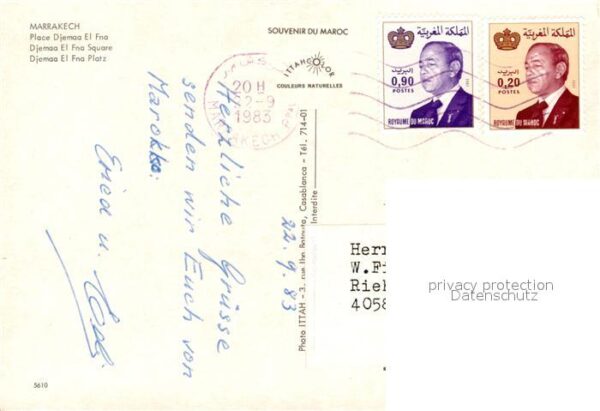 MARRAKECH
Place Djemaa El Fna
Djemaa El Fna Square
Djemaa El Fna Platz
SOUVENIR DU MAROC
ITTAH COLOR
COULEURS NATURELLES
20 H
22-9
1983
المملكة المغربية
البريد
0,90
POSTES
ROYAUME DU MAROC
المملكة المغربية
البريد
0,20
POSTES
ROYAUME DU MAROC
Herzliche Grüsse
senden wir Euch von
Marokko.
22.9.83
Photo ITTAH - 3, rue Ibn Batouta, Casablanca - Tél. 714-01
Interdite
Herr
W.Fi
Rieh
4058
privacy protection
Datenschutz
5610